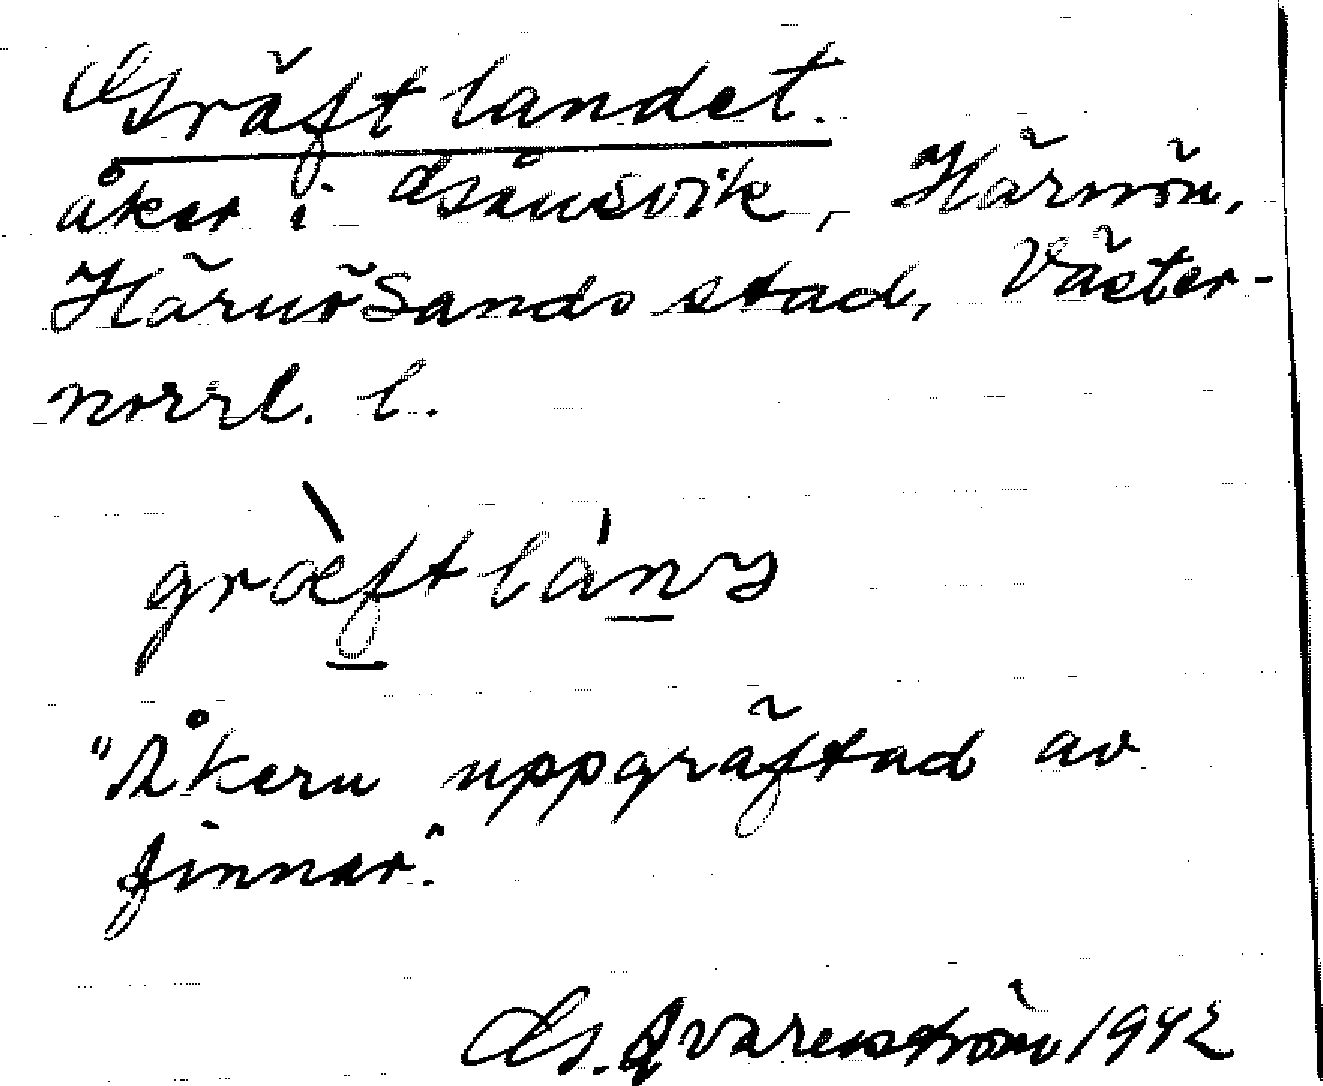 Gräftlandet.
åker i Gånsvik, Härnön,
Härnösands stad, Väster-
norrl. l.
græftlánə
"Åkern uppgräftad av
finnar."
G. Qvarenström 1942